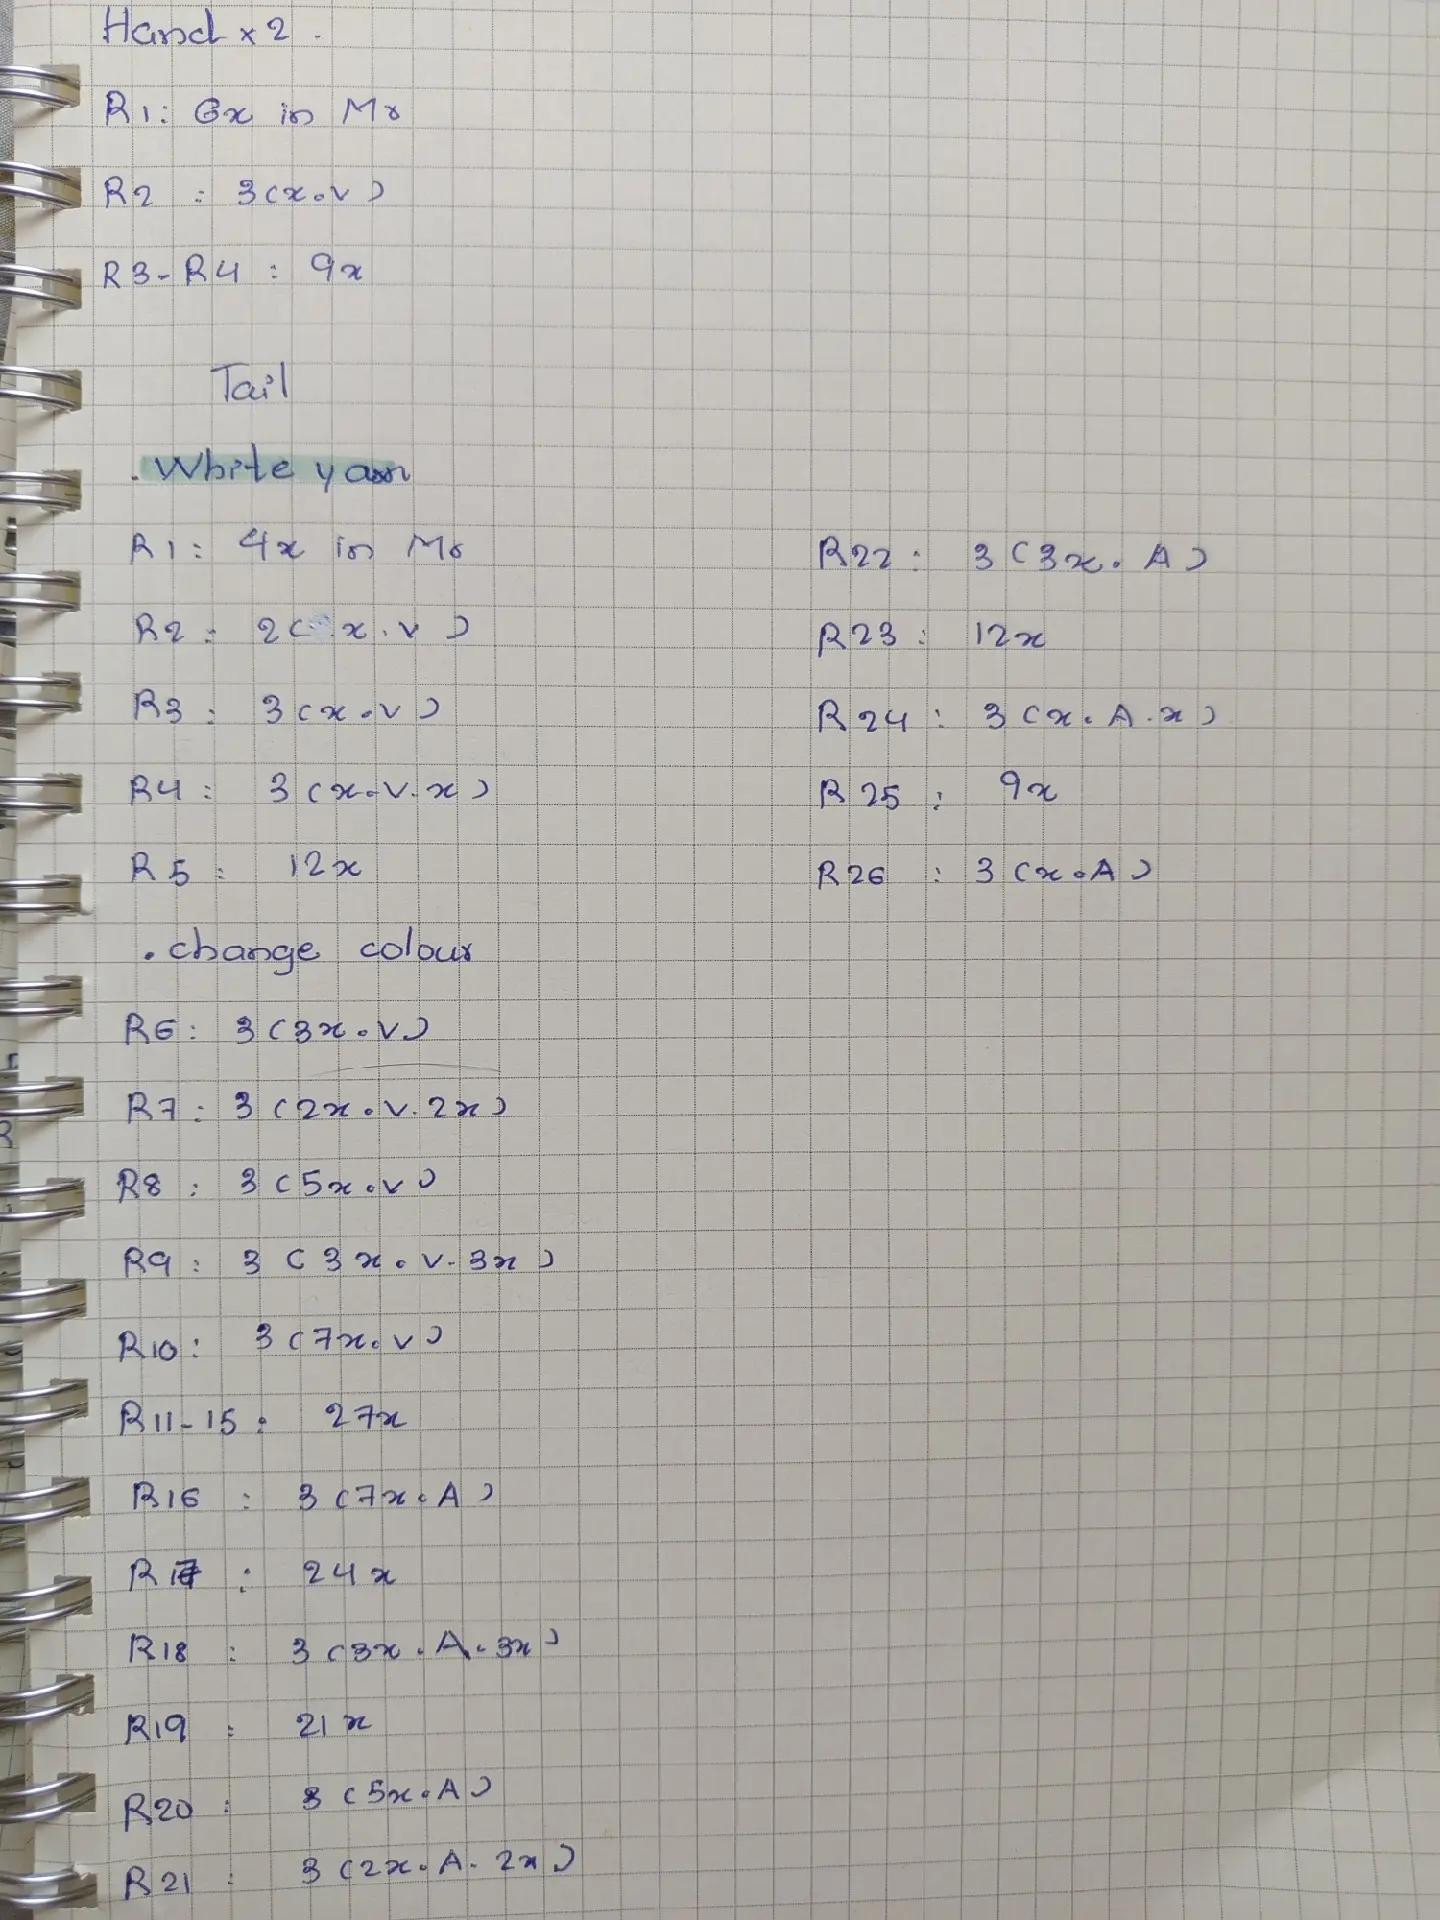 Hand x 2 .
R1: 6x in Mr
R2 : 3(x.v)
R3-R4 : 9x
Tail
. White yarn
R1: 4x in Mr
R2: 2(x.v)
R3: 3(x.v)
R4: 3(x.v.x)
R5: 12x
. change colour
R6: 3(3x.v)
R7: 3(2x.v.2x)
R8: 3(5x.v)
R9: 3(3x.v.3x)
R10: 3(7x.v)
R11-15: 27x
R16 : 3(7x.A)
R17 : 24x
R18 : 3(3x.A.3x)
R19 : 21x
R20 : 3(5x.A)
R21 : 3(2x.A.2x)
R22: 3(3x.A)
R23: 12x
R24: 3(x.A.x)
R25: 9x
R26 : 3(x.A)